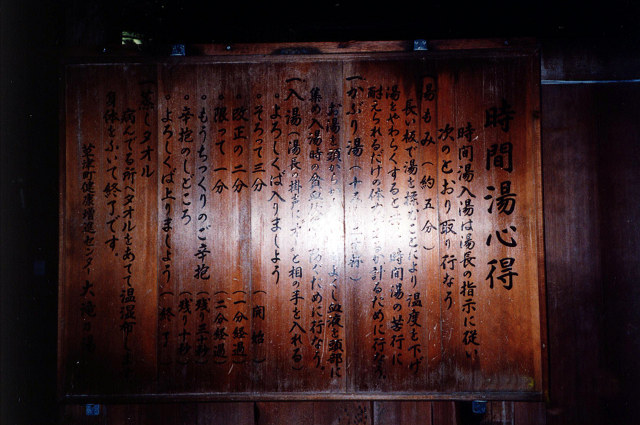 時間湯心得
時間湯入湯は湯長の指示に従い
次のとおり取り行なう
一湯もみ(約五分)
長い板で湯を揉むことにより温度を下げ
湯をやわらくすると 時間湯の苦行に
耐えられるだけの体 計るために行なう。
一かぶり湯(
お湯を頭から 血液を頭部に
集め入湯時の貧血 ために行なう。
一入湯(湯長の掛声に と相の手を入れる)
。よろしくば入りましょう
。そろって三分(開始)
。改正の二分(一分経過)
。限って一分(二分経過)
。もうちっくりのご辛抱(残り三十秒)
。辛抱のしどころ(残り十秒)
。よろしくば上りましょう(終了)
一蒸しタオル
病んでる所へタオルをあてて温湿布し
身体をふいて終了です。
草津町健康増進センター 大滝乃湯